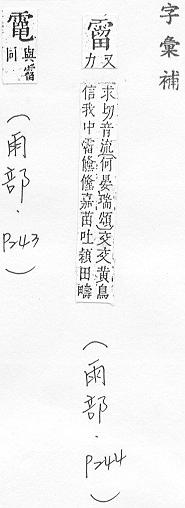 字彙補
霤 又力
求切音流何晏瑞頌交交黃鳥
信我中霤翛翛嘉苗吐穎田疇
(雨部.P244)
與霤同
(雨部.P243)